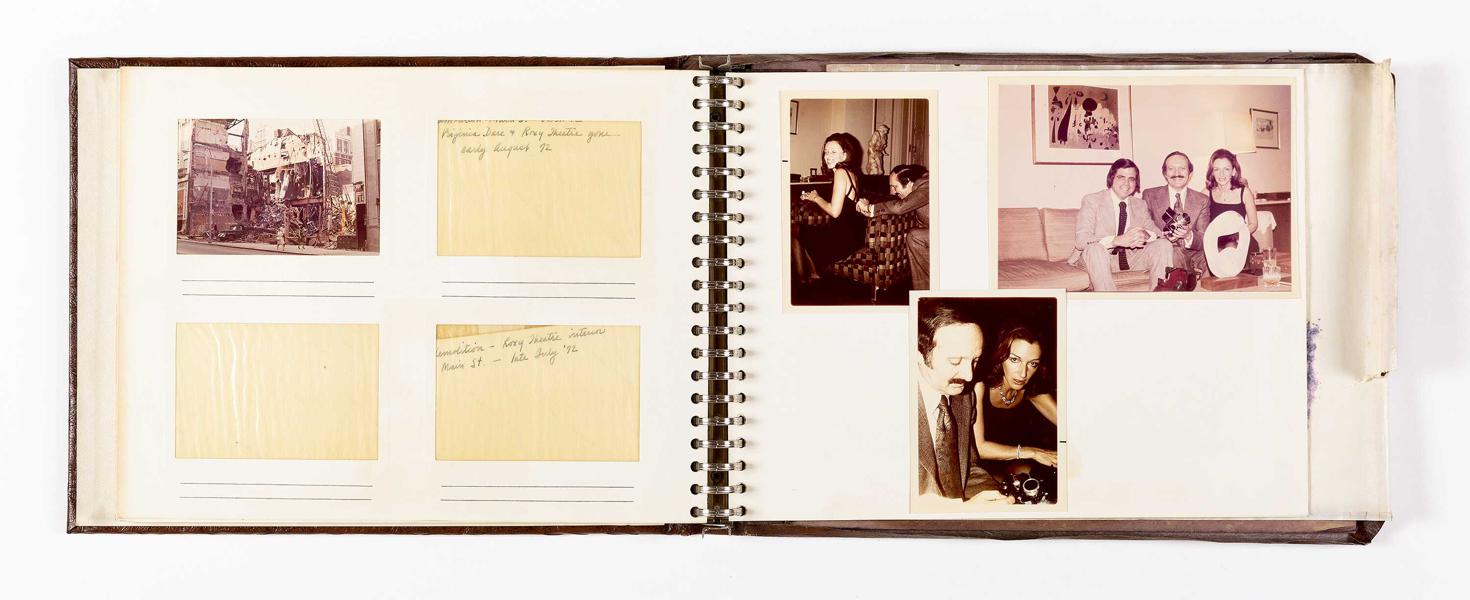 Virginia Dare & Roxy Theatre gone
early August '72
emolition – Roxy Theatre interior
Main St. – late July '72